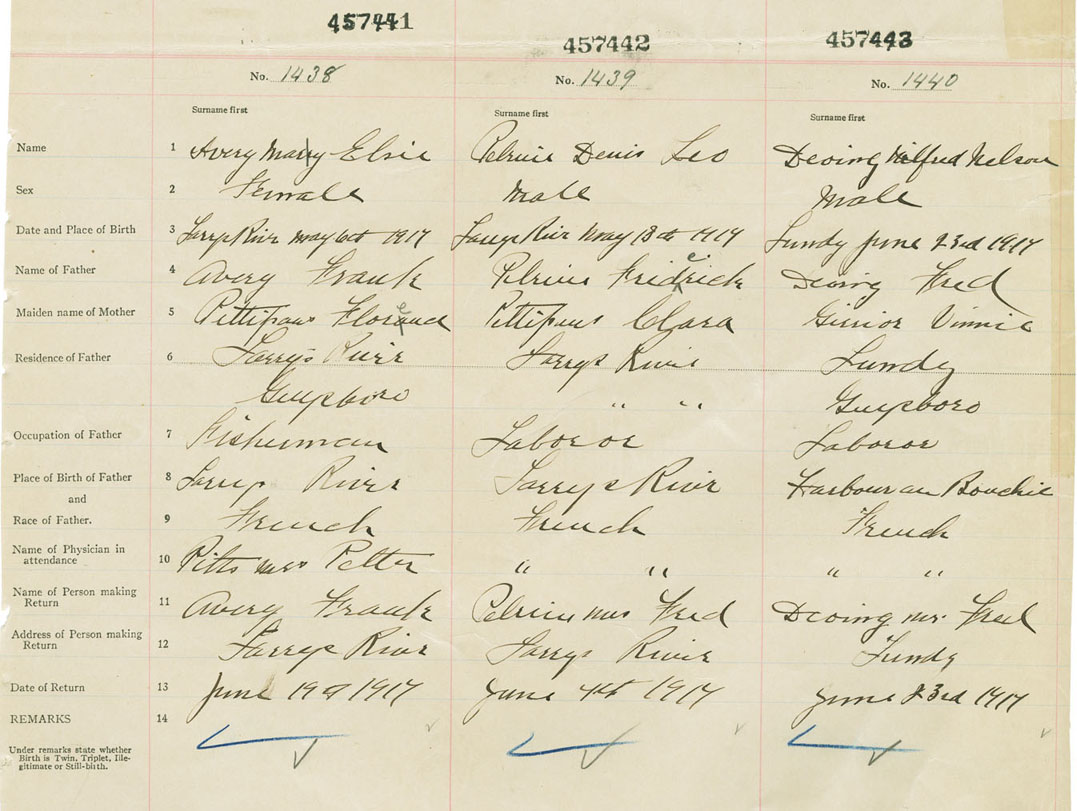 457441 457442 457443
No. 1438 No. 1439 No. 1440
Surname first Surname first Surname first
Name 1 Avery Mary Elsie Pelrine Denis Leo Deoing Wilfred Nelson
Sex 2 Female Male Male
Date and Place of Birth 3 Larrys River May 6th 1917 Larrys River May 18th 1917 Lundy June 23rd 1917
Name of Father 4 Avery Frank Pelrine Fredrick Deoing Fred
Maiden name of Mother 5 Pettipaus Pettipaus Clara Vinnie
Residence of Father 6 Larrys River Larrys River Lundy
Guysboro " " Guysboro
Occupation of Father 7 Fisherman Laboror Laboror
Place of Birth of Father 8 Larrys River Larrys River Harbour au Bouchie
and
Race of Father. 9 French French French
Name of Physician in
attendance 10 Pitts Mrs Petter " " " "
Name of Person making
Return 11 Avery Frank Pelrine Mrs Fred Deoing Mr. Fred
Address of Person making
Return 12 Larrys River Larrys River Lundy
Date of Return 13 June 19th 1917 June 4th 1917 June 23rd 1917
REMARKS 14
Under remarks state whether
Birth is Twin, Triplet, Ille-
gitimate or Still-birth.